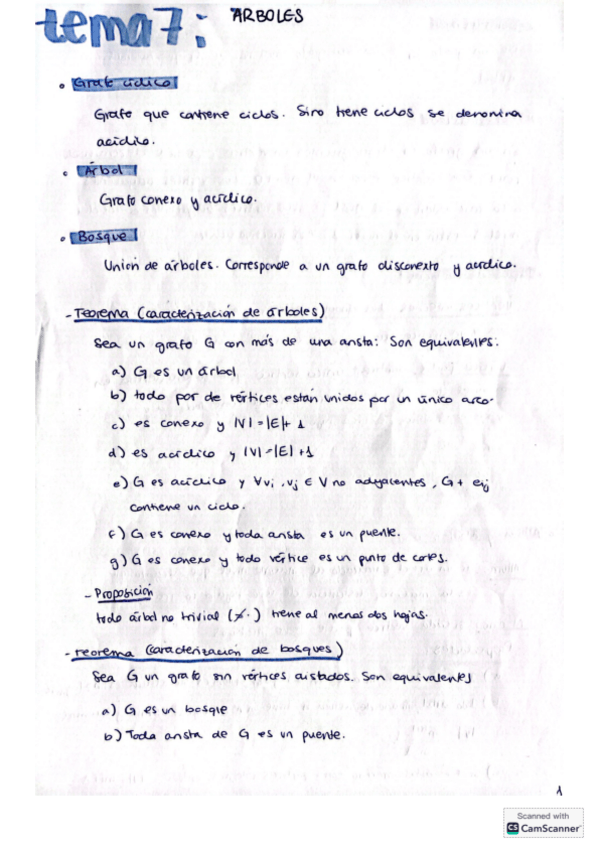 tema 7: ÁRBOLES
• Grafo cíclico
Grafo que contiene ciclos. Si no tiene ciclos se denomina
acíclico.
• Árbol
Grafo conexo y acíclico.
• Bosque
Unión de árboles. Corresponde a un grafo disconexo y acíclico.
- Teorema (caracterización de árboles)
Sea un grafo G con más de una arista: Son equivalentes:
a) G es un árbol
b) todo par de vértices están unidos por un único arco.
c) es conexo y |V| = |E| + 1
d) es acíclico y |V| = |E| + 1
e) G es acíclico y ∀vi, vj ∈ V no adyacentes, G + eij
contiene un ciclo.
f) G es conexo y toda arista es un puente.
g) G es conexo y todo vértice es un punto de cortes.
- Proposición
todo árbol no trivial ( ) tiene al menos dos hojas.
- Teorema (caracterización de bosques)
Sea G un grafo sin vértices aislados. Son equivalentes
a) G es un bosque
b) Toda arista de G es un puente.
1
Scanned with
CS CamScanner